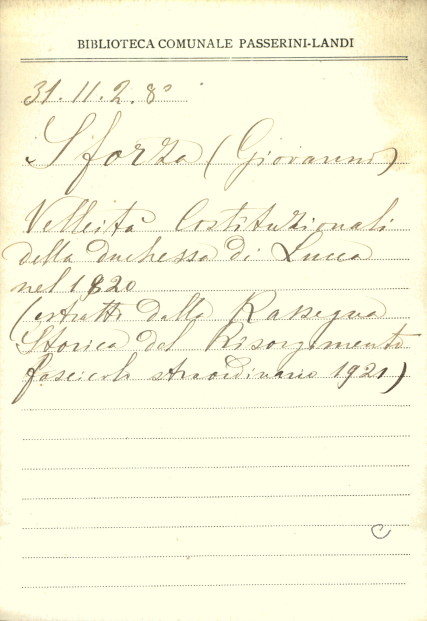 BIBLIOTECA COMUNALE PASSERINI-LANDI
31. 11. 2. 8°
Sforza (Giovanni)
Velleità Costituzionali
della duchessa di Lucca
nel 1820
(estratto dalla Rassegna
Storica del Risorgimento
fascicolo straordinario 1921)
C